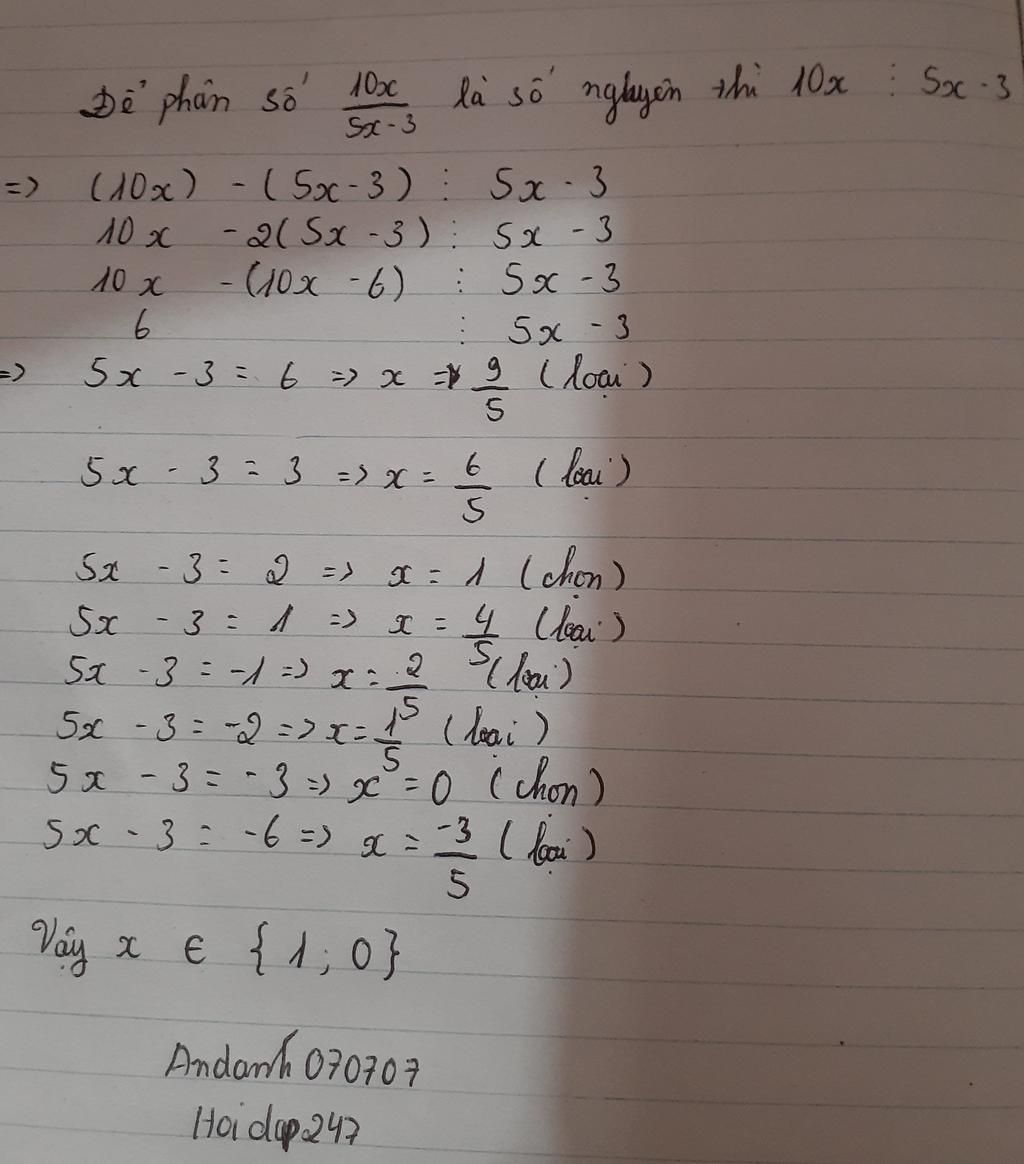 Để phân số 10x/5x-3 là số nguyên thì 10x ⋮ 5x-3
=> (10x) - (5x-3) ⋮ 5x - 3
10x - 2(5x - 3) ⋮ 5x - 3
10x - (10x - 6) ⋮ 5x - 3
6 ⋮ 5x - 3
=> 5x - 3 = 6 => x = 9/5 (loại)
5x - 3 = 3 => x = 6/5 (loại)
5x - 3 = 2 => x = 1 (chọn)
5x - 3 = 1 => x = 4/5 (loại)
5x - 3 = -1 => x = 2/5 (loại)
5x - 3 = -2 => x = 1/5 (loại)
5x - 3 = -3 => x = 0 (chọn)
5x - 3 = -6 => x = -3/5 (loại)
Vậy x ∈ {1; 0}
Andanh070707
Hoidap247